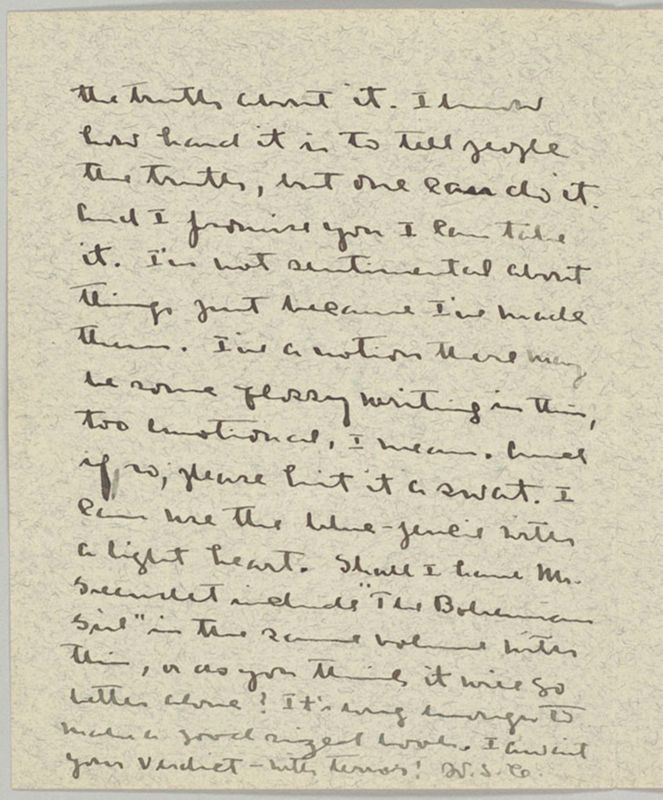 the truth about it. I know
how hard it is to tell people
the truth, but one can do it.
And I promise you I can take
it. I'm not sentimental about
things just because I've made
them. I've a notion there may
be some flossy writing in this,
too emotional, I mean. And
if so, please hit it a swat. I
can use the blue-pencil with
a light heart. Shall I have Mr.
include "The Bohemian
Girl" in the same volume with
this, or do you think it will go
better alone? It's long enough to
make a good sized book. I await
your verdict - with terror! W. S. C.